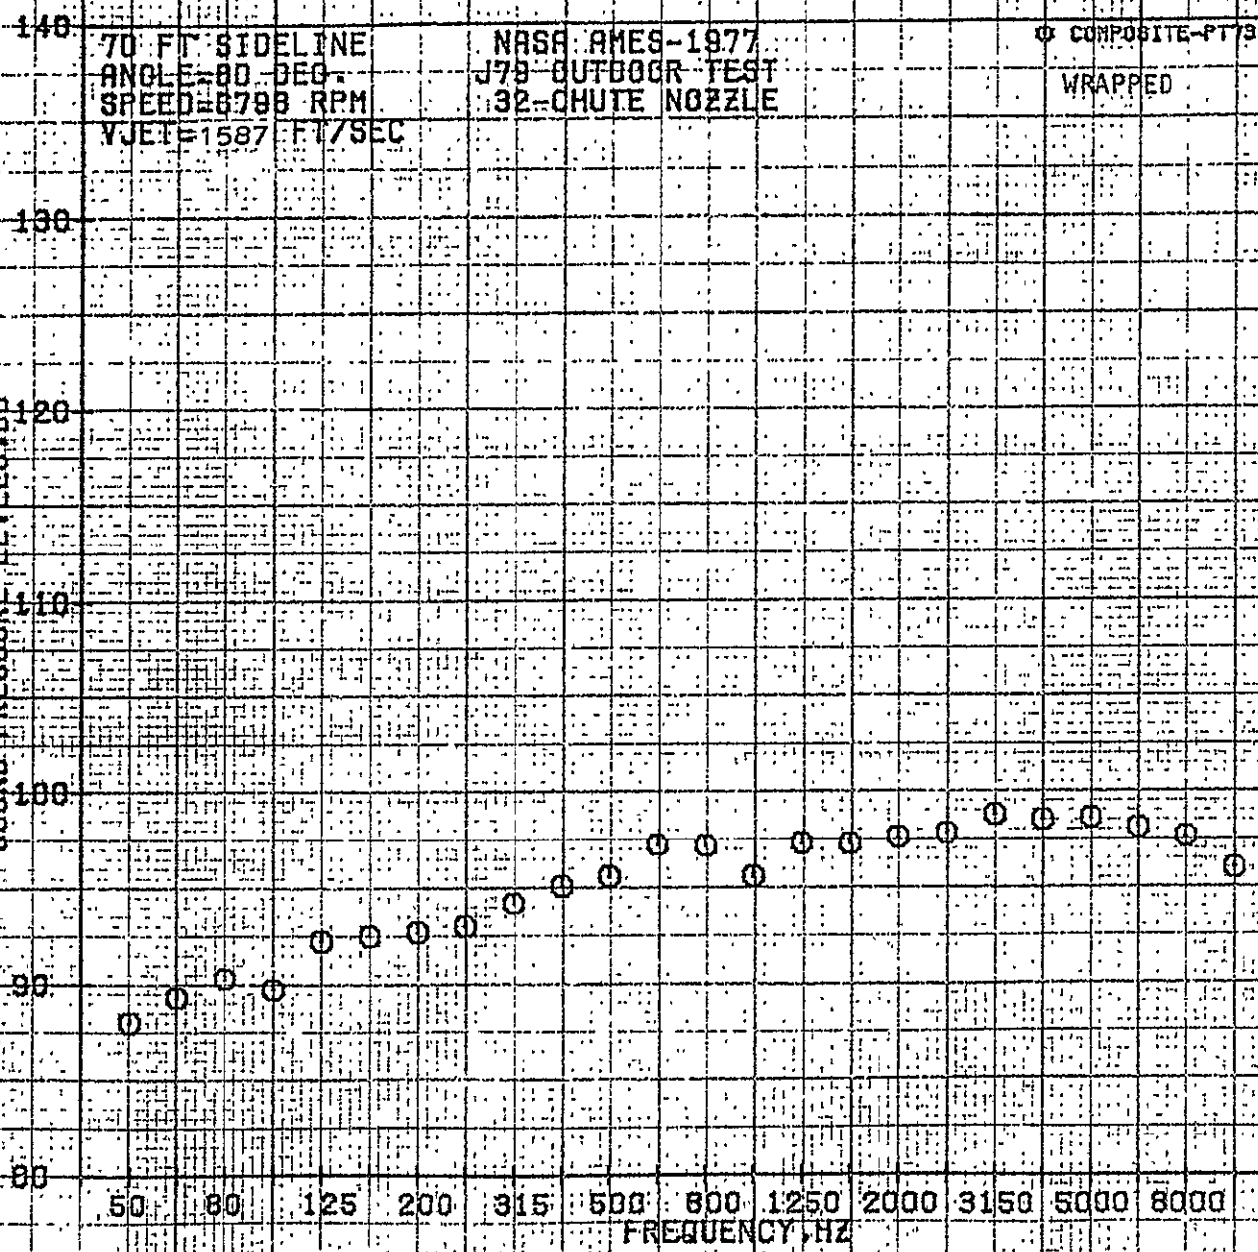 140
70 FT SIDELINE
ANGLE=80 DEG.
SPEED=6798 RPM
VJET=1587 FT/SEC
NASA AMES-1977
J79 OUTDOOR TEST
32-CHUTE NOZZLE
COMPOSITE-PT79
WRAPPED
130
120
110
100
90
80
50 80 125 200 315 500 800 1250 2000 3150 5000 8000
FREQUENCY,HZ